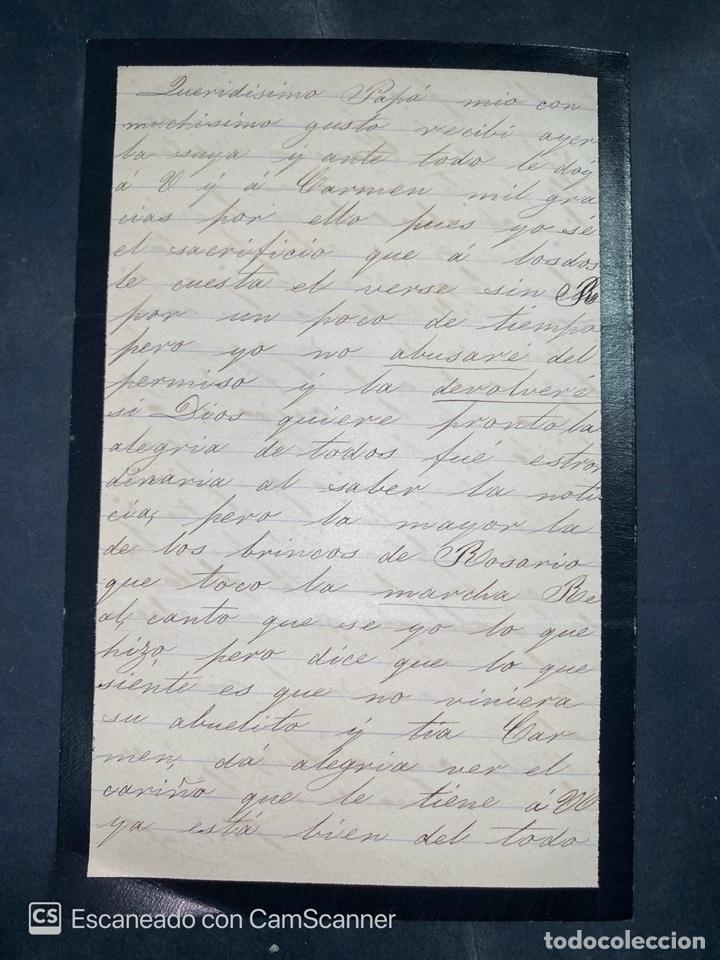 Queridisimo Papá mio con
muchisimo gusto recibi ayer
la suya y ante todo le doy
á V y á Carmen mil gra
cias por ello pues yo sé
el sacrificio que á losdos
le cuesta el verse sin
por un poco de tiempo
pero yo no abusaré del
permiso y la devolveré
si Dios quiere pronto la
alegria de todos fué estro
dinaria al saber la noti
cia, pero la mayor la
de los brincos de Rosario
que toco la marcha Re
al, canto que se yo lo que
hizo, pero dice que lo que
siente es que no viniera
su abuelito y tia Car
men, dá alegria ver el
cariño que le tiene á VV
ya está bien del todo
CS Escaneado con CamScanner
todocoleccion